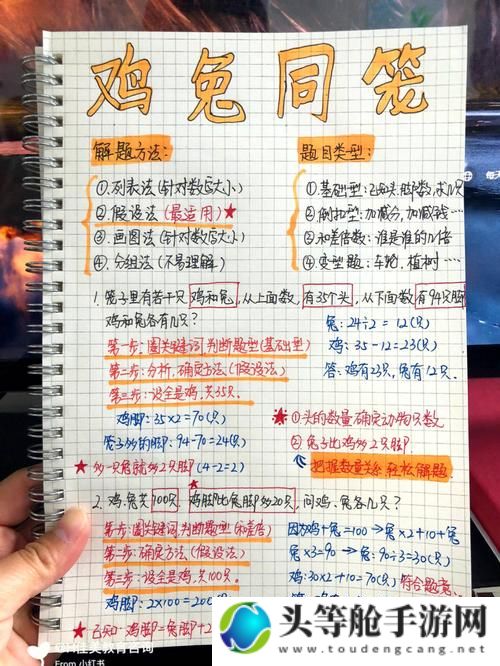 鸡兔同笼
解题方法:
①.列表法(针对数字大小)
②.假设法(最适用)★
③.画图法(针对数字大小)
④.分组法(不易理解)
题目类型:
①.基础型:已知头脚数,求几只
②.倒扣型:加减分,加减钱…
③.和差倍数:谁是谁的几倍
④.变型题:车轮.植树……
1.笼子里有若干只鸡和兔,从上面数,有35个头,从下面数有94只脚
鸡和兔各有几只?
第一步:圈关键词,判断题型(基础型)
第二步:分析,确定方法(假设法)
第三步:设全是鸡,共35只.
鸡脚:35×2=70(只)
笼子多的脚:94-70=24(只)
★多一只兔就多2只脚(4-2=2)
兔:24÷2=12(只)
鸡:35-12=23(只)
答:鸡有23只,兔有12只.
★①头的数量确定动物只数
②兔子比鸡多2只脚.
把握数量关系轻松解题
2.鸡.兔共100只,鸡脚比兔脚多20只,问鸡.兔各几只?
第一步:圈关键词,判断题型(和差倍)
第二步:确定方法.(假设法)
第三步:设全是鸡,共100只.
鸡脚:2×100=200
★已知:鸡脚=兔脚+2
因为鸡+兔=100→兔×2+10+兔
兔×3=90→兔:90÷3=30(只)
鸡:30×2+10=70(只)符合题意.
头等舱手游网
www.toudengcang.net
From 小红书